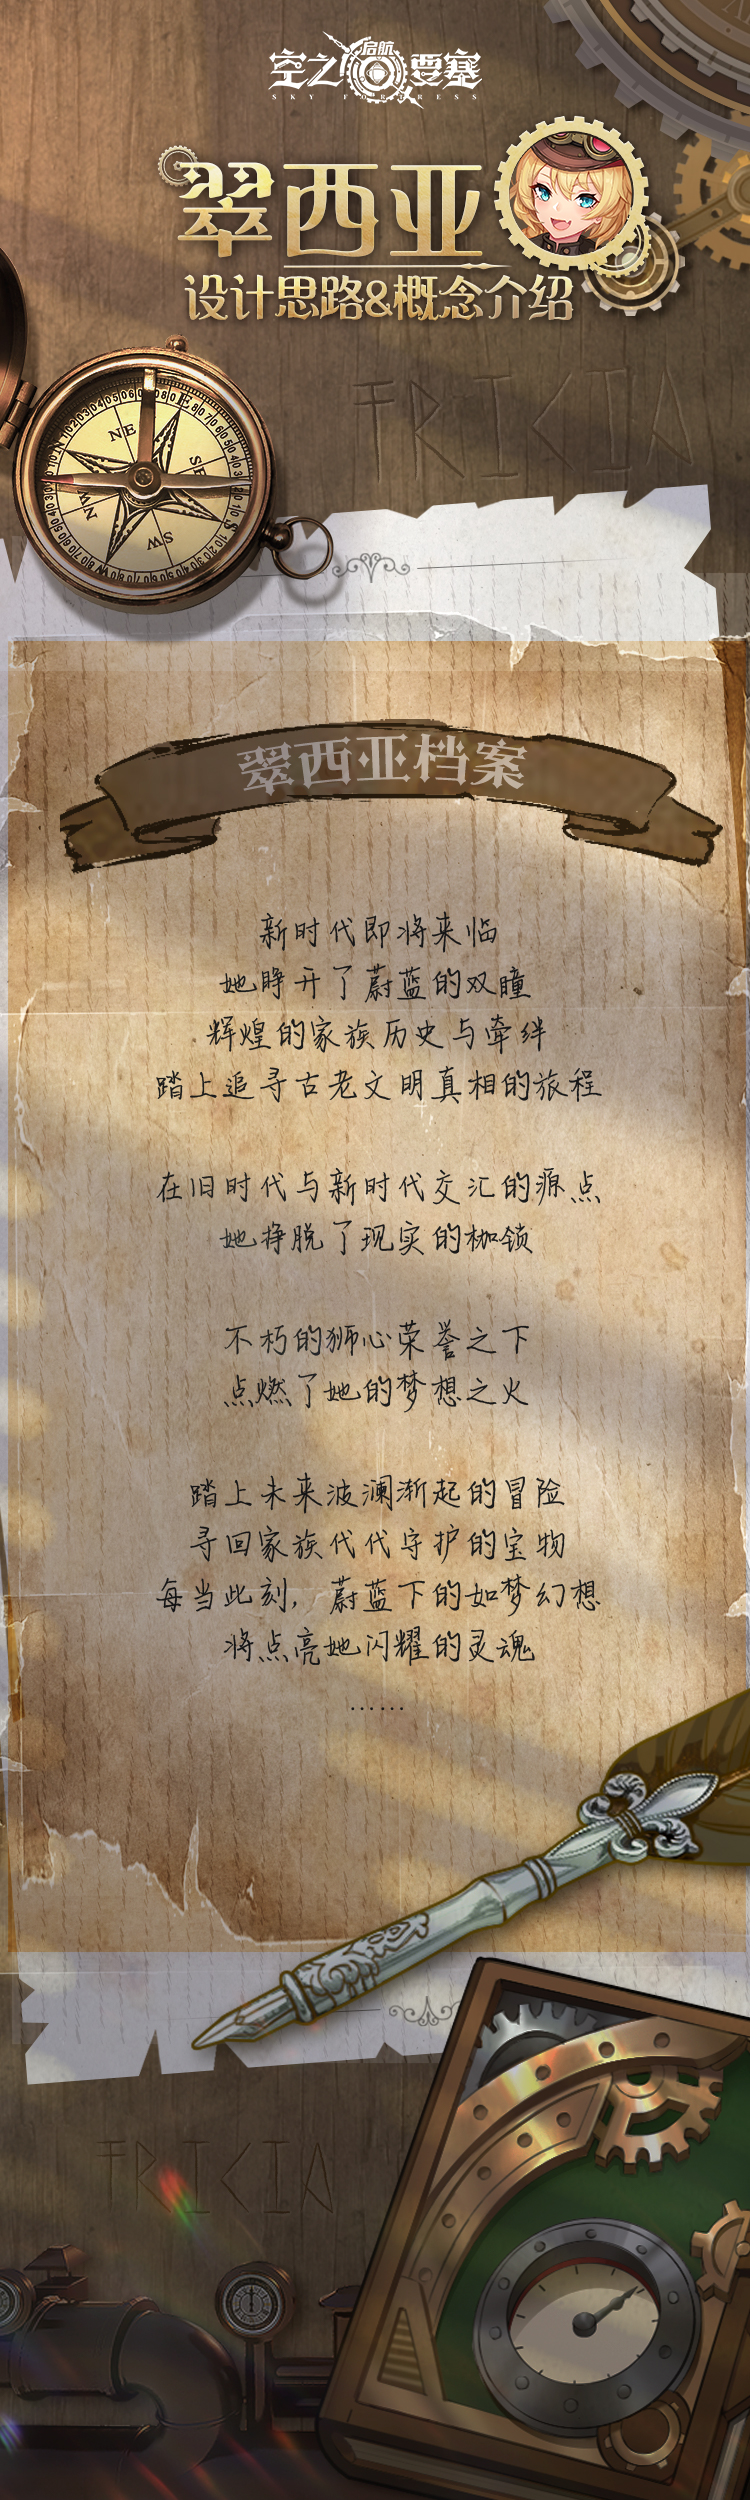 空之启航要塞
SKY FORTRESS
翠西亚
设计思路&概念介绍
TRICIA
NE
SE
SW
NW
翠西亚档案
新时代即将来临
她睁开了蔚蓝的双瞳
辉煌的家族历史与牵绊
踏上追寻古老文明真相的旅程
在旧时代与新时代交汇的源点
她挣脱了现实的枷锁
不朽的狮心荣誉之下
点燃了她的梦想之火
踏上未来波澜渐起的冒险
寻回家族代代守护的宝物
每当此刻，蔚蓝下的如梦幻想
将点亮她闪耀的灵魂
……
TRICIA